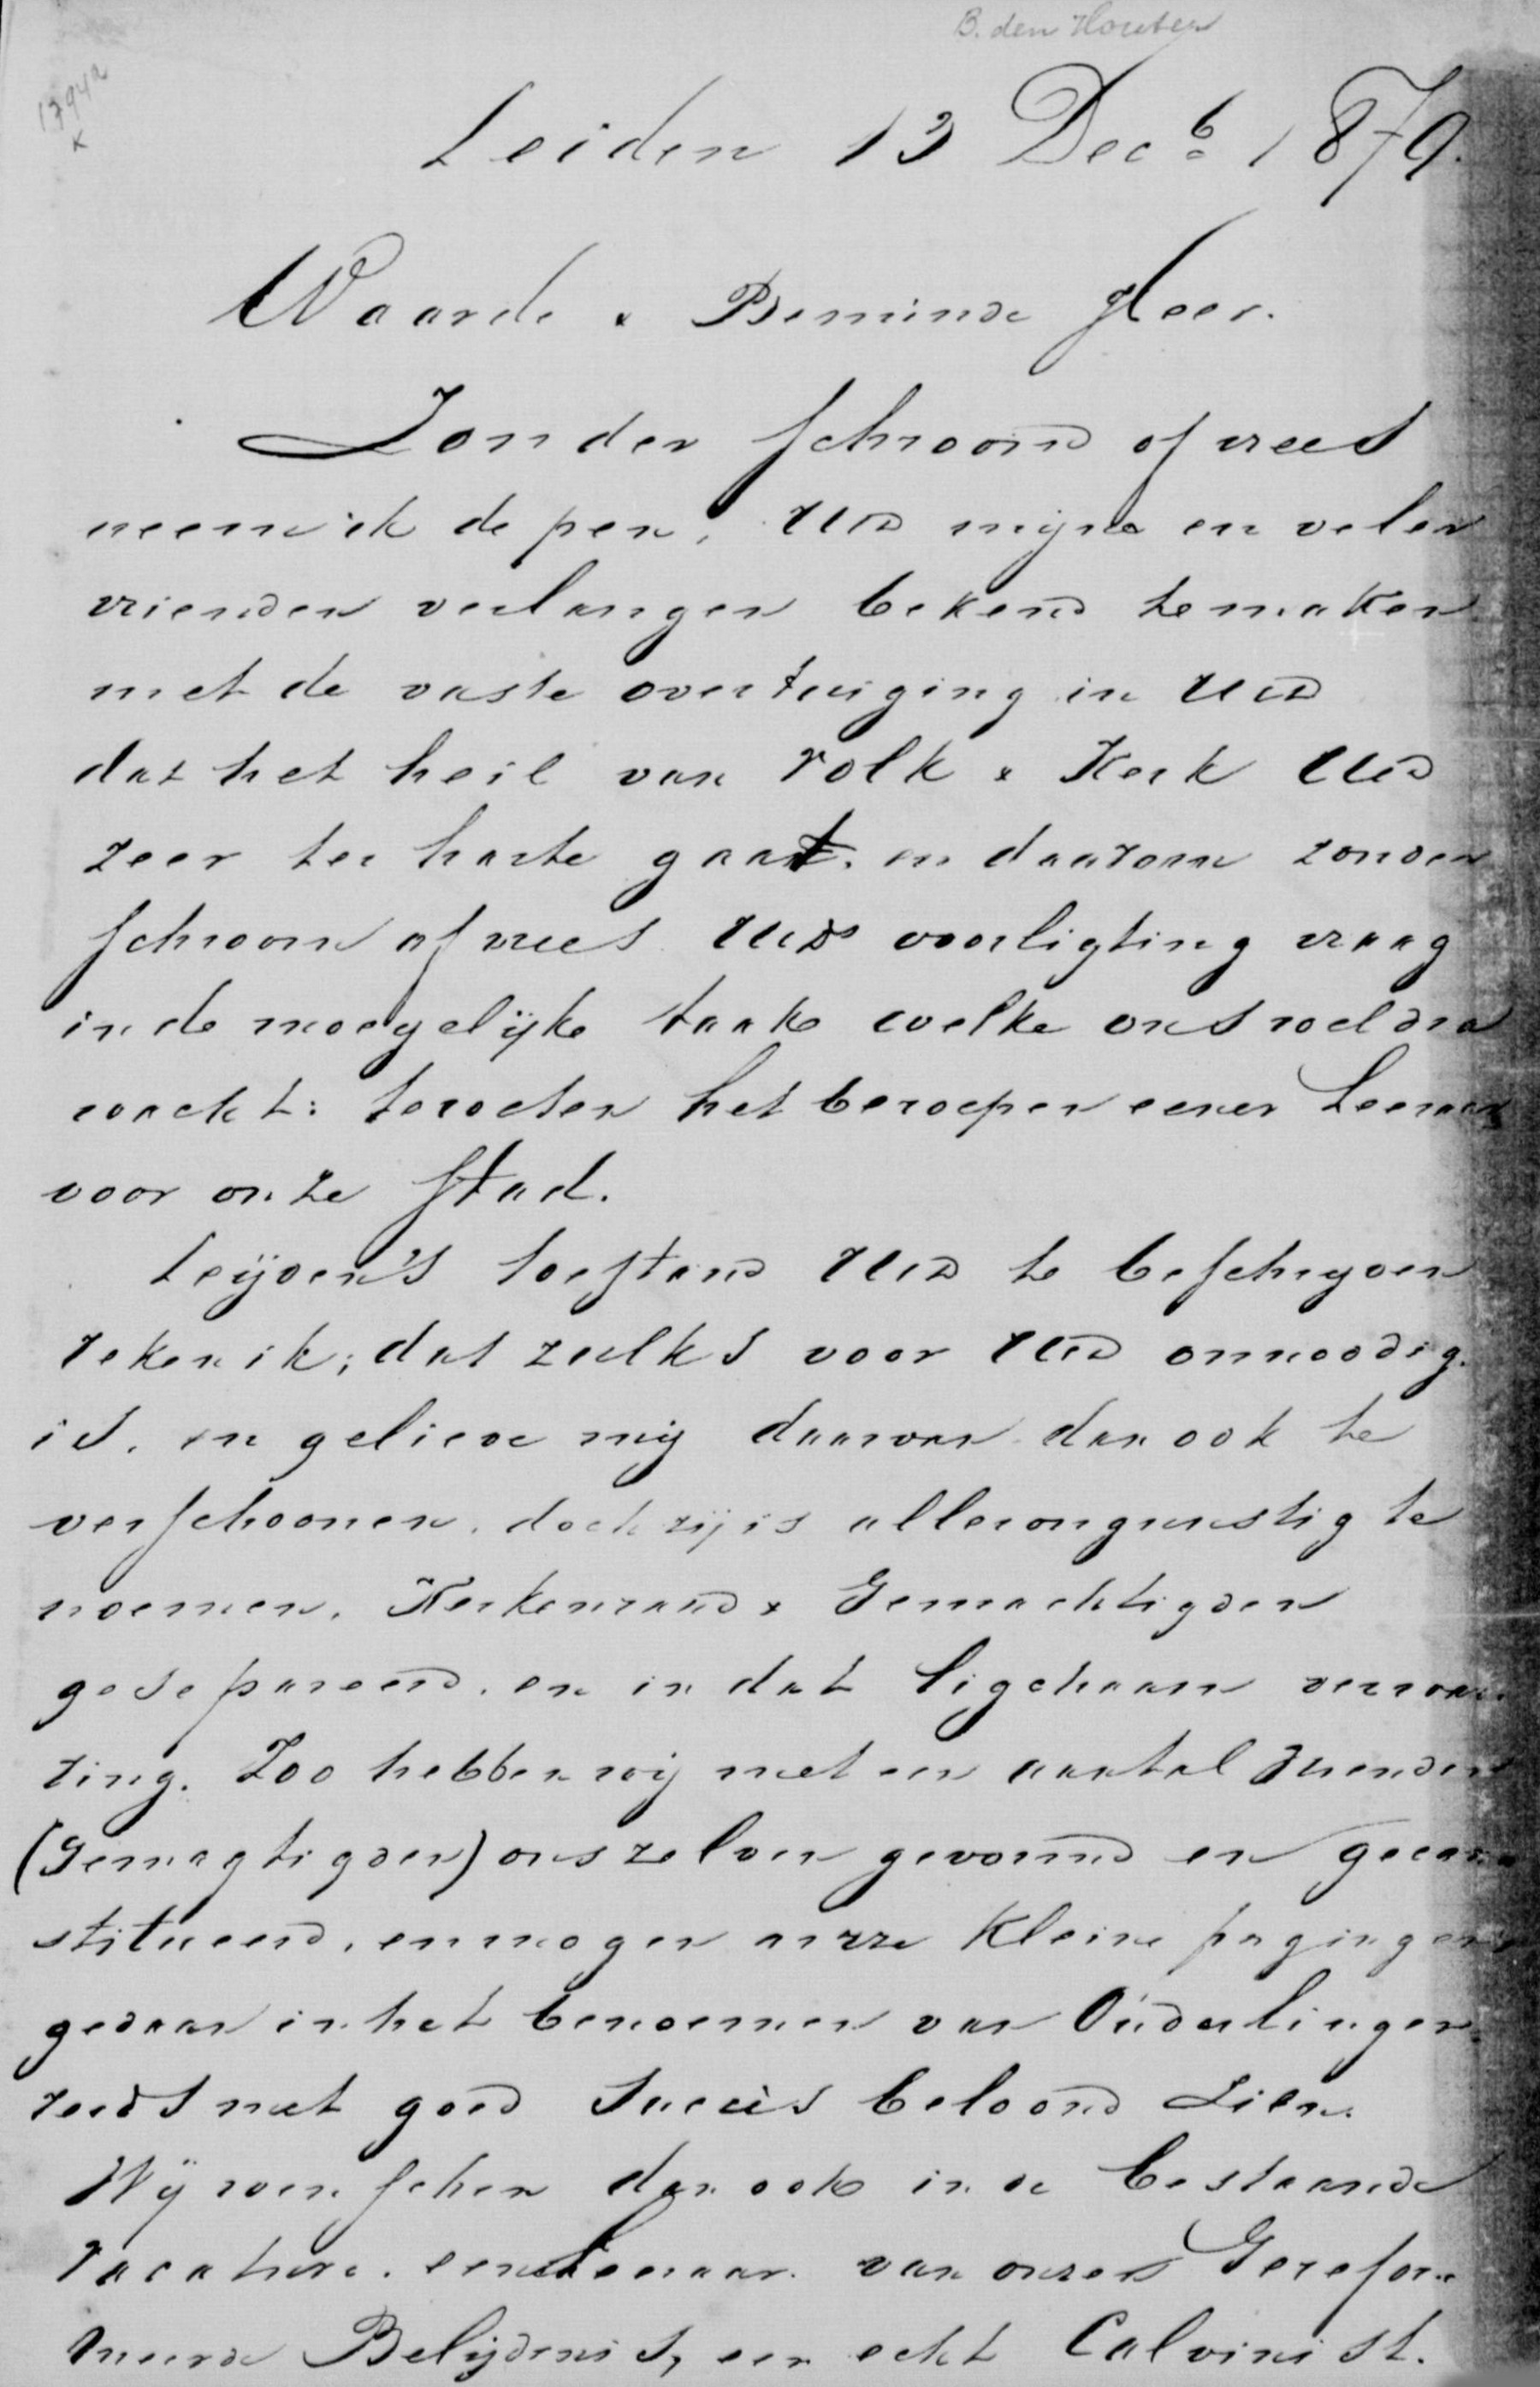 B. den Houter
1794a
x
Leiden 13 Decb 1879.
Waarde & Beminde Heer.
Zonder schroom of vrees
neem ik de pen, UEd mijne en veler
vrienden verlangen bekend te maken
met de vaste overtuiging in UEd
dat het heil van Volk & Kerk UEd
zeer ter harte gaat. en daarom zonder
schroom of vrees UEds voorligting vraag
in de moeyelijke taak welke ons weldra
wacht: te weten het beroepen eener Leeraar
voor onze Stad.
Leijden's toestand UEd te beschrijven
reken ik, dat zulks voor UEd onnoodig.
is. en gelieve mij daarvan dan ook te
verschoonen. doch zij is allerongunstig te
noemen. Kerkenraad & Gemachtigden
gesepareerd. en in dat ligchaam verwar
ring. Zoo hebben wij met een aantal vrienden
(Gemagtigden) ons zelven gevormd en gecon
stitueerd, en mogen onze kleine pogingen
gedaan in het benoemen van Ouderlingen
reeds met goed succès beloond zien.
Wij wenschen dan ook in de bestaande
vacature. een Leeraar. van onzes Gerefor
meerde Belijdenis, een echt Calvinist.